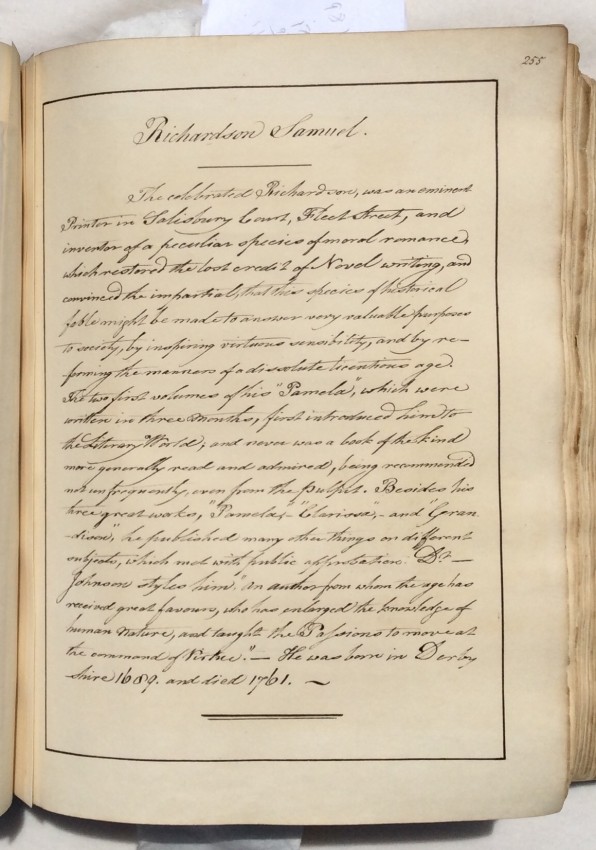 255
Richardson Samuel.
The celebrated Richardson, was an eminent
Printer in Salisbury Court, Fleet Street, and
inventor of a peculiar species of moral romance,
which restored the lost credit of Novel writing, and
convinced the impartial, that this species of historical
fable might be made to answer very valuable purposes
to society, by inspiring virtuous sensibility, and by re-
forming the manners of a dissolute licentious age.
The two first volumes of his "Pamela", which were
written in three months, first introduced him to
the Literary World, and never was a book of the kind
more generally read and admired, being recommended
not unfrequently, even from the Pulpit. Besides his
three great works, "Pamela", - "Clarissa", - and "Gran
-dison", he published many other things on different
subjects, which met with public approbation. Dr. —
Johnson styles him "An author from whom the age has
received great favours, who has enlarged the knowledge of
human nature, and taught the Passions to move at
the command of Virtue." — He was born in Derby
-shire 1689. and died 1761. ~